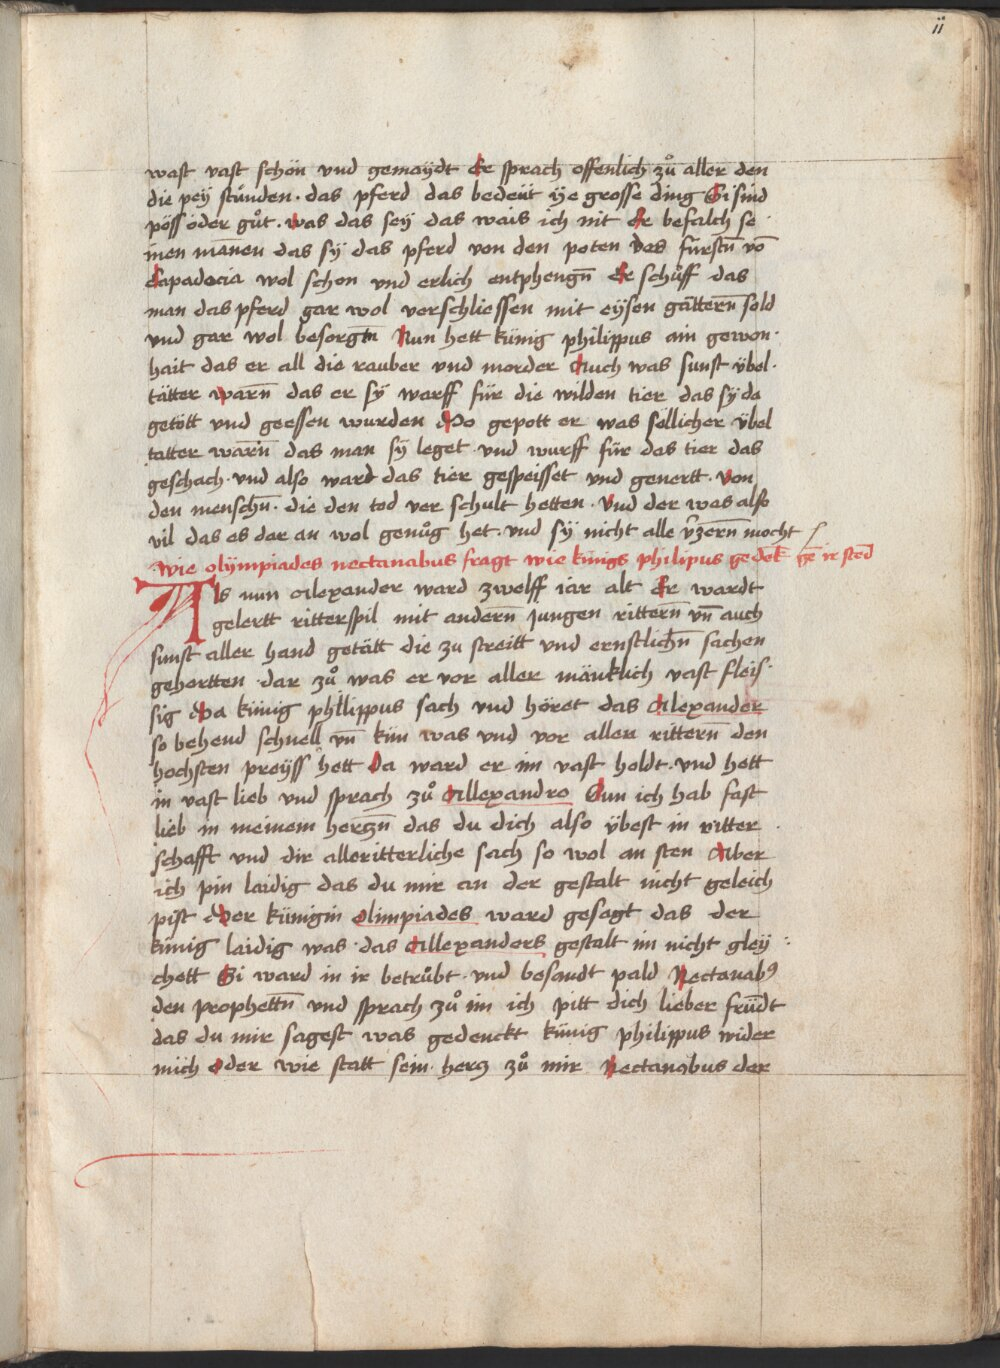 ii
wast vast schön vnd gemaÿdt Er sprach offenlich zů aller den
die peÿ stu̇nden · das pferd das bedeüt ÿe grosse ding Si sind
pöss oder gůt · was das seÿ das wais ich nit Er befalch se
inen man̄en das sÿ das pferd von den poten des fürstn̄ vō
Capadocia wol schon vnd erlich entphengn̄ Er schůff das
man das pferd gar wol verschliessen mit eÿsen gättern̄ sold
vnd gar wol besorgtn̄ Nun hett künig philippus ain gewon·
hait das er all die rauber vnd morder Auch was sunst v̈bel·
tätter warn̄ das er sÿ warff für die wilden tier das sÿ da
getött vnd geessen wurden Do gepott er was sollicher v̈bel
tatter warn̄ das man sÿ leget · vnd wurff für das tier das
geschach · vnd also ward das tier gespeisset vnd genertt · von
den menschn̄ · die den tod ver schult hetten · Vnd der was also
vil das es dar an wol genůg het · vnd sÿ nicht alle v̄zern̄ mocht
wie olÿmpiades nectanabus fragt wie künigs philipus gedek̄ gē ir sted̄
Als nun Alexander ward zwelff iar alt Er wardt
gelertt ritterspil mit andern̄ jungen rittern̄ vn̄ auch
sunst aller hand getätt die zu streitt vnd ernstlichn̄ sachen
gehertten · dar zů was er vor aller mänklich vast fleis·
sig Da künig philippus sach vnd höret das Alexander
so behend schnell vn̄ kün was vnd vor allen rittern̄ den
hochsten preÿss hett Da ward er im vast holdt · vnd hett
in vast lieb vnd sprach zů Allexandro Sun ich hab fast
lieb in meinem hertzn̄ das du dich also v̈best in ritter
schafft vnd dir alleritterliche sach so wol an sten Aber
ich pin laidig das du mir an der gestalt nicht geleich
pist Der künigin Olimpiades ward gesagt das der
künig laidig was · das Allexanders gestalt im nicht gleÿ
chett Si ward in ir betrůbt · vnd besandt pald Nectanabꝰ
den prophettn̄ vnd sprach zů im ich pitt dich lieber frün̄dt
das du mir sagest was gedenckt künig philippus wider
mich oder wie statt sein · hertz zů mir Nectanabus der